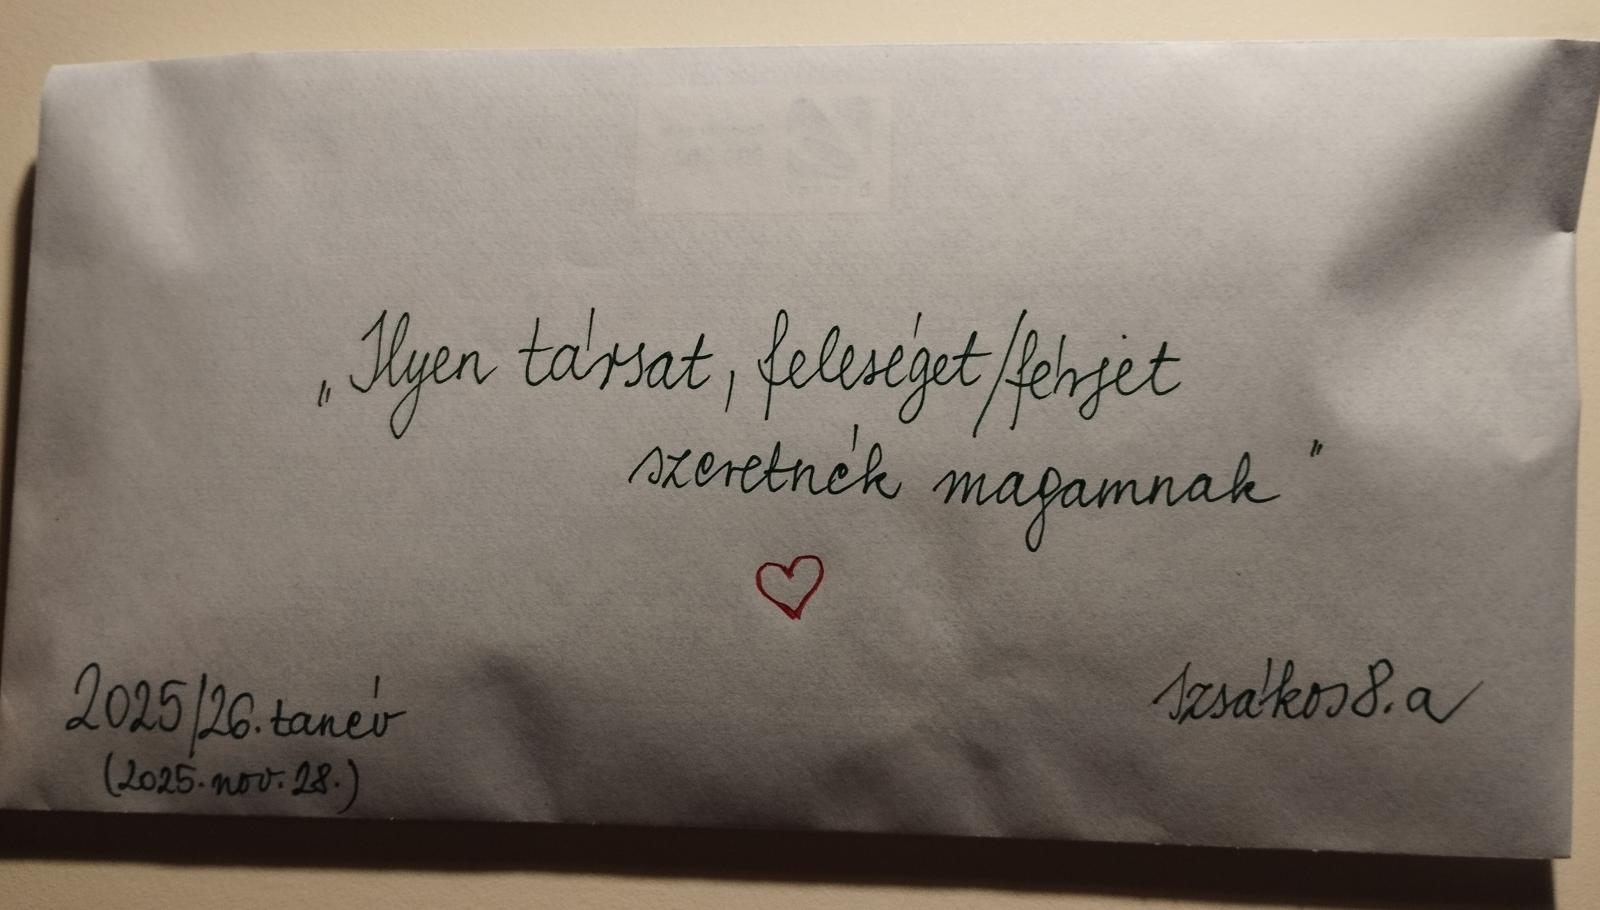 „Ilyen társat, feleséget/férjet
szeretnék magamnak"
2025/26. tanév
(2025. nov. 28.)
Szsákos 8. a